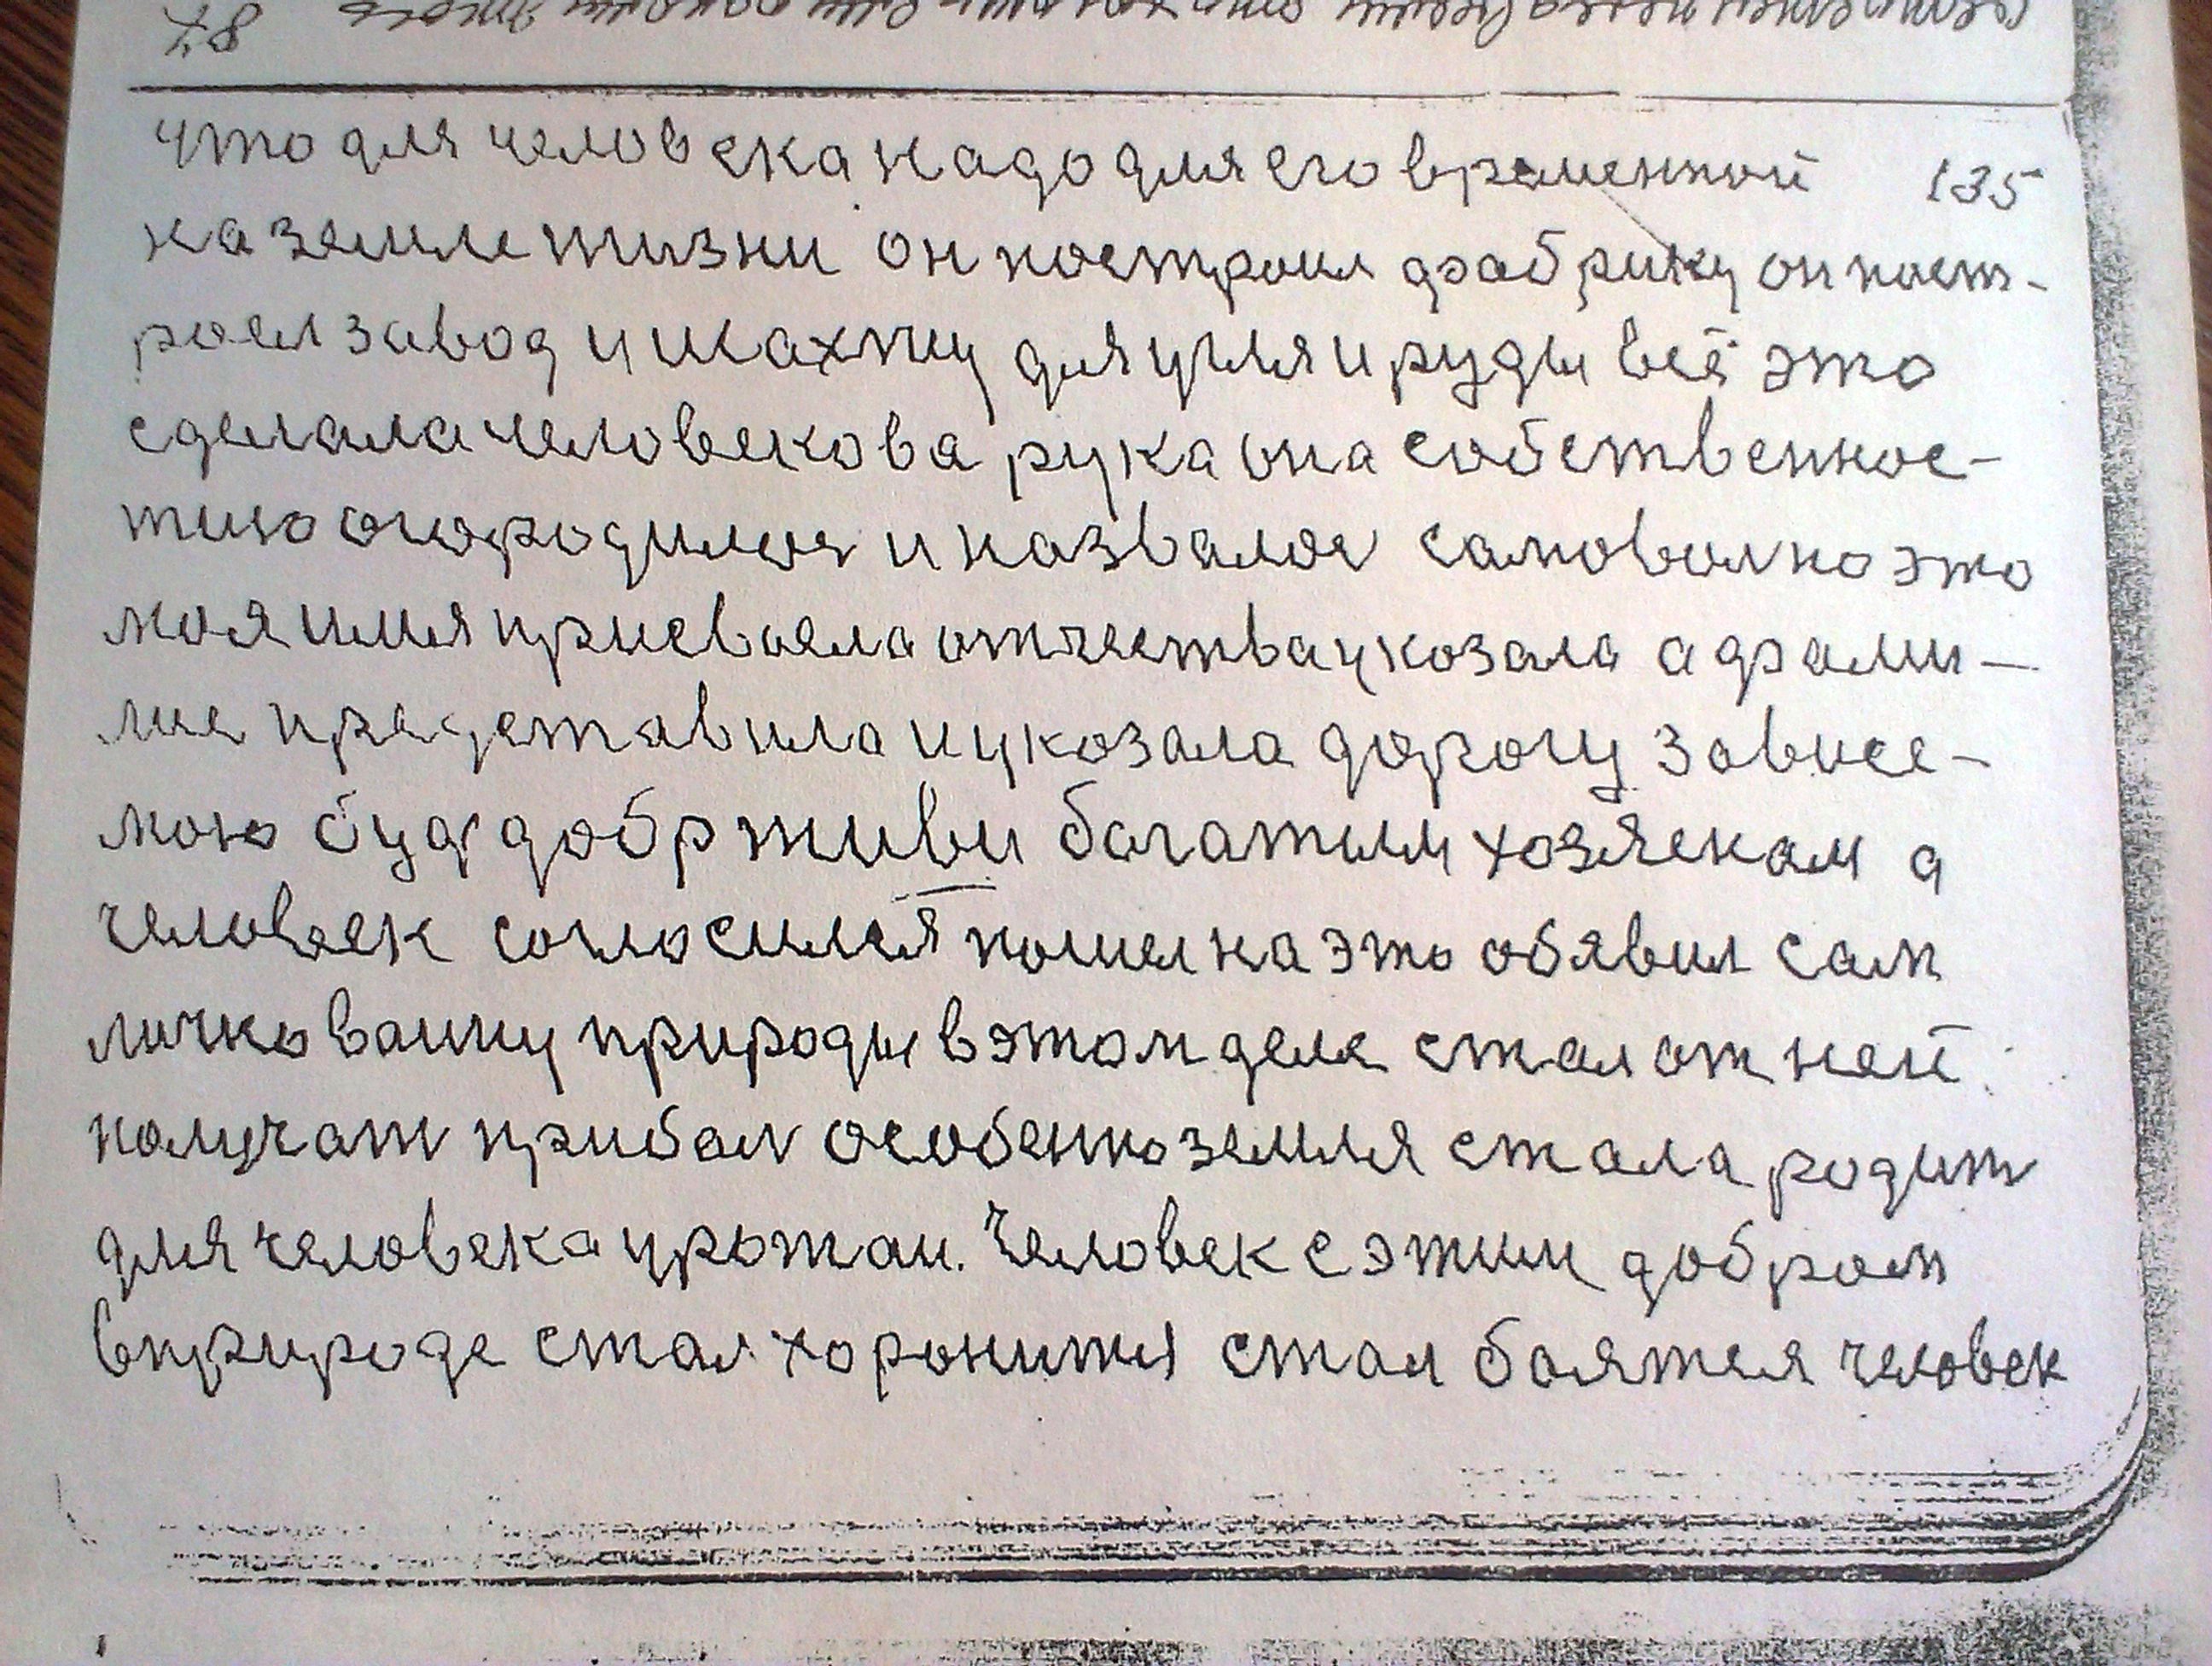 что для человека надо для его временной 135
на земле жизни он построил фабрику он пост-
роел завод и шахту для угля и руды всё это
сделала человекова рука она собственнос-
тию огородилас и назвалас самоволно это
моя имя присвоела отчества указала а фами-
лие представила и указала дорогу зависе-
мою буд добр живи багатым хозяекам а
человек согласился пошел на это обявил сам
личко вайну природы в этом деле стал от ней
получат прибал особенно земля стала родит
для человека урожаи. Человек с этим добром
в природе стал хоронится стал боятся человек